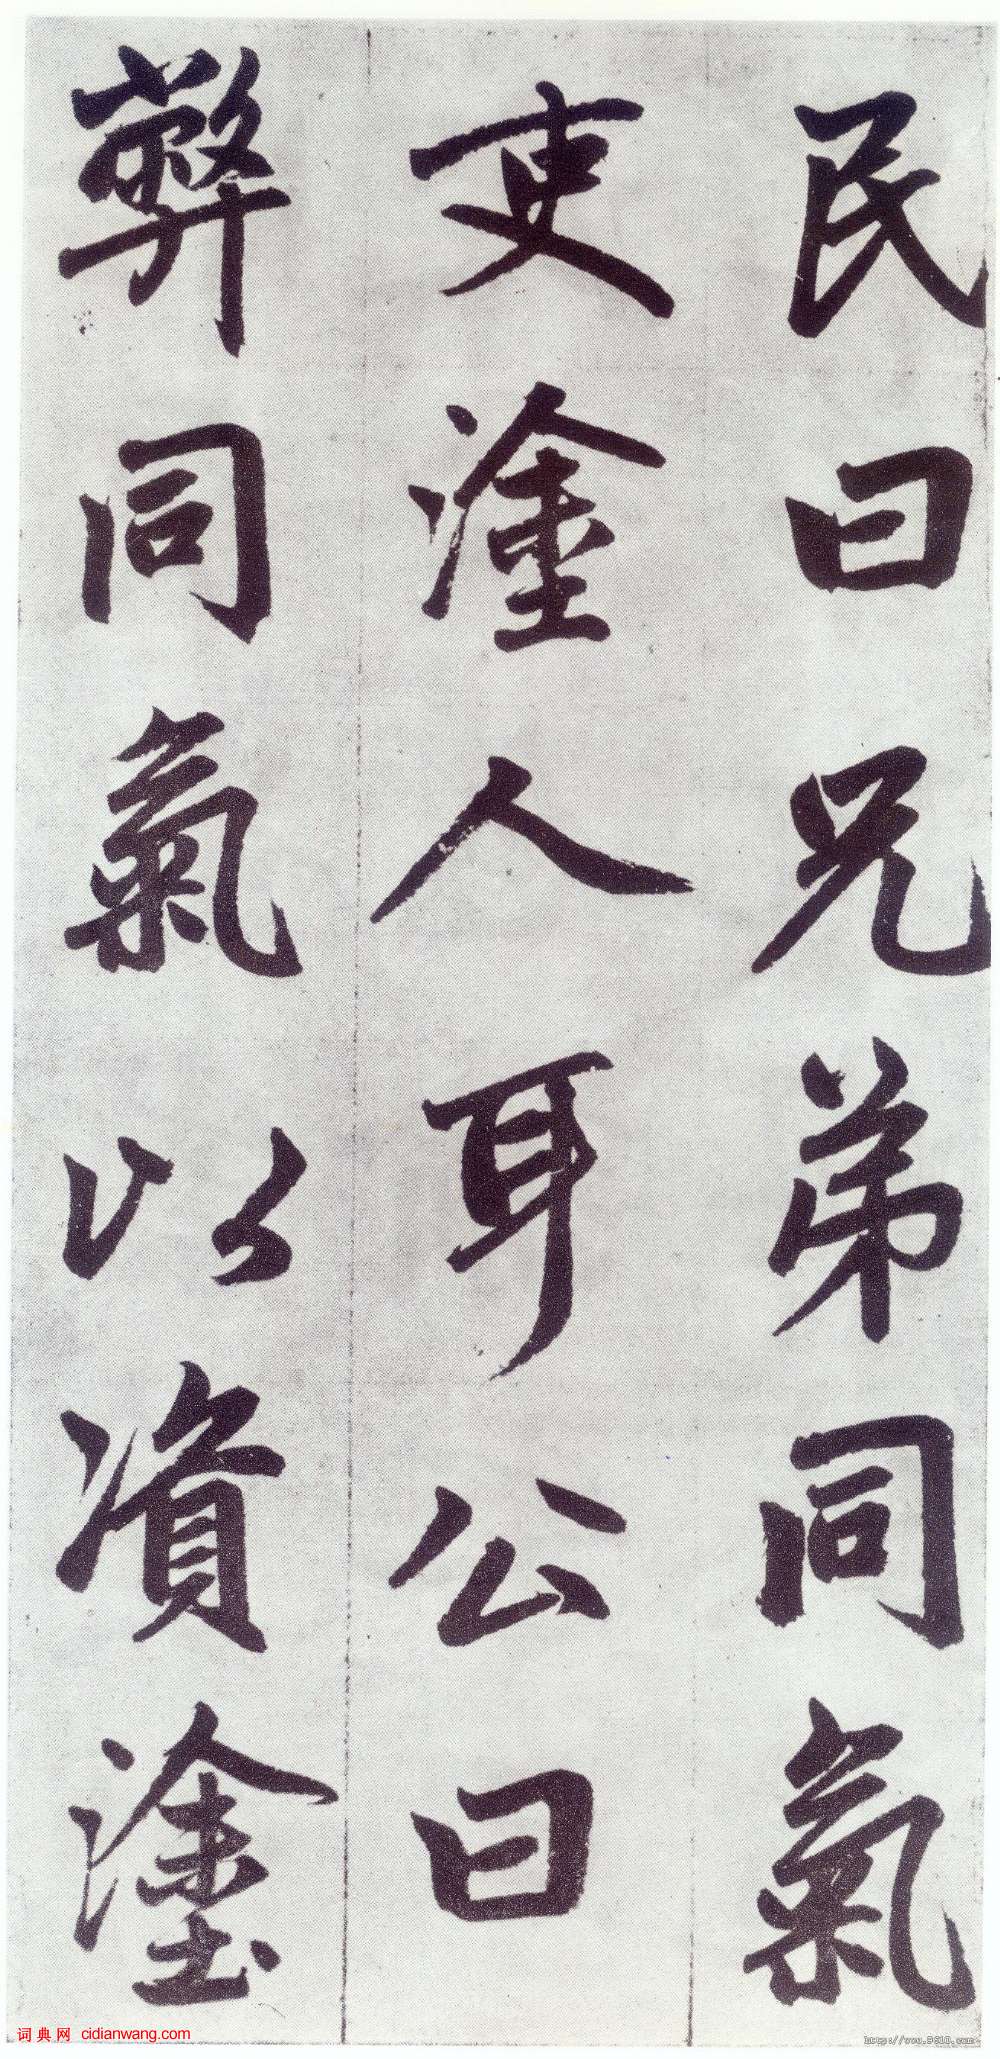 民曰兄弟同氣
吏塗人耳公曰
弊同氣以資塗
词典网 cidianwang.com